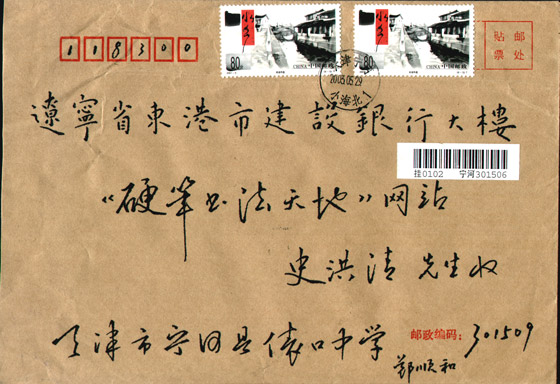 118300
80 CHINA 中国邮政
80 CHINA 中国邮政
贴邮票处
2005.05.29
遼寧省東港市建設銀行大樓
挂0102 宁河301506
《硬笔书法天地》网站
史洪清 先生收
天津市宁河县俵口中学
邮政编码：301509
郑顺和